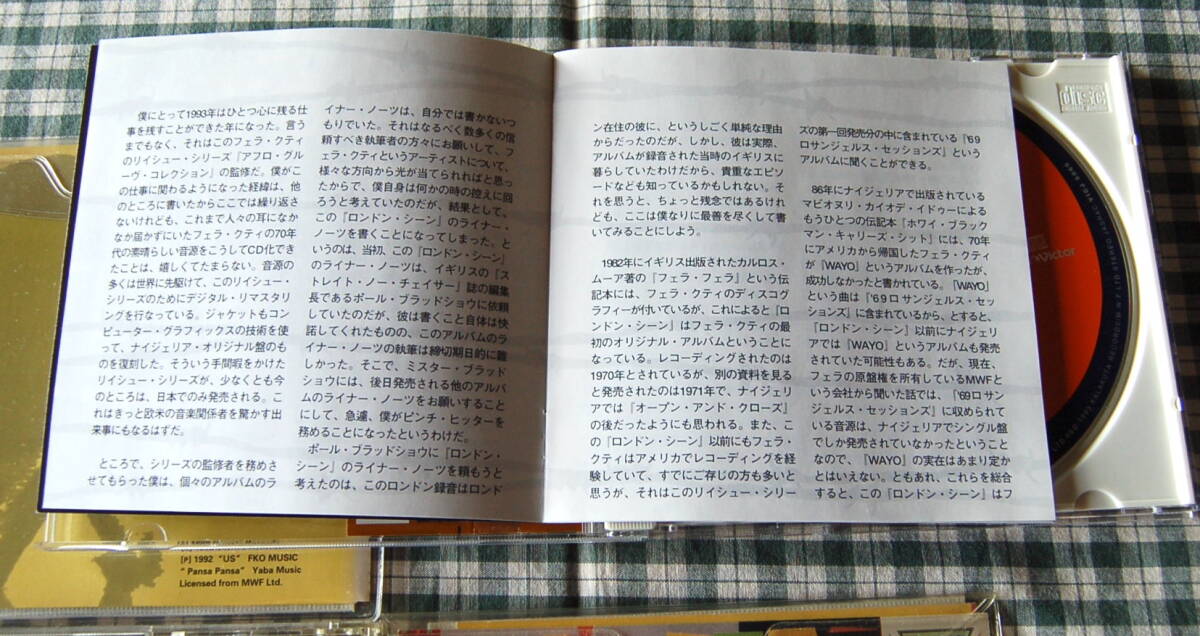 僕にとって1993年はひとつ心に残る仕
事を残すことができた年になった。言う
までもなく、それはこのフェラ・クティ
のリイシュー・シリーズ『アフロ・グル
ーヴ・コレクション』の監修だ。僕がこ
の仕事に関わるようになった経緯は、他
のところに書いたからここでは繰り返さ
ないけれども、これまで人々の耳になか
なか届かずにいたフェラ・クティの70年
代の素晴らしい音源をこうしてCD化でき
たことは、嬉しくてたまらない。音源の
多くは世界に先駆けて、このリイシュー・
シリーズのためにデジタル・リマスタリ
ングを行なっている。ジャケットもコン
ピューター・グラフィックスの技術を使
って、ナイジェリア・オリジナル盤のも
のを復刻した。そういう手間暇をかけた
リイシュー・シリーズが、少なくとも今
のところは、日本でのみ発売される。こ
れはきっと欧米の音楽関係者を驚かす出
来事にもなるはずだ。
ところで、シリーズの監修者を務めさ
せてもらった僕は、個々のアルバムのラ
イナー・ノーツは、自分では書かないつ
もりでいた。それはなるべく数多くの信
頼すべき執筆者の方々にお願いして、フ
ェラ・クティというアーティストについて、
様々な方向から光が当てられればと思っ
たからで、僕自身は何かの時の控えに回
ろうと考えていたのだが、結果として、
この『ロンドン・シーン』のライナー・
ノーツを書くことになってしまった。と
いうのは、当初、この『ロンドン・シーン』
のライナー・ノーツは、イギリスの『ス
トレイト・ノー・チェイサー』誌の編集
長であるポール・ブラッドショウに依頼
していたのだが、彼は書くこと自体は快
諾してくれたものの、このアルバムのラ
イナー・ノーツの執筆は締切期日的に難
しかった。そこで、ミスター・ブラッド
ショウには、後日発売される他のアルバ
ムのライナー・ノーツをお願いすること
にして、急遽、僕がピンチ・ヒッターを
務めることになったというわけだ。
ポール・ブラッドショウに『ロンドン・
シーン』のライナー・ノーツを頼もうと
考えたのは、このロンドン録音はロンド
ン在住の彼に、というしごく単純な理由
からだったのだが、しかし、彼は実際、
アルバムが録音された当時のイギリスに
暮らしていたわけだから、貴重なエピソ
ードなども知っているかもしれない。そ
れを思うと、ちょっと残念ではあるけれ
ども、ここは僕なりに最善を尽くして書
いてみることにしよう。
1982年にイギリス出版されたカルロス・
ムーア著の『フェラ・フェラ』という伝
記本には、フェラ・クティのディスコグ
ラフィーが付いているが、これによると『ロ
ンドン・シーン』はフェラ・クティの最
初のオリジナル・アルバムということに
なっている。レコーディングされたのは
1970年とされているが、別の資料を見る
と発売されたのは1971年で、ナイジェリ
アでは『オープン・アンド・クローズ』
の後だったようにも思われる。また、こ
の『ロンドン・シーン』以前にもフェラ・
クティはアメリカでレコーディングを経
験していて、すでにご存じの方も多いと
思うが、それはこのリイシュー・シリー
ズの第一回発売分の中に含まれている『'69
ロサンジェルス・セッションズ』という
アルバムに聞くことができる。
86年にナイジェリアで出版されている
マビオヌリ・カイオデ・イドゥーによる
もうひとつの伝記本『ホワイ・ブラック
マン・キャリーズ・シット』には、70年
にアメリカから帰国したフェラ・クティ
が『WAYO』というアルバムを作ったが、
成功しなかったと書かれている。「WAYO」
という曲は『'69ロサンジェルス・セッ
ションズ』に含まれているから、とすると、
『ロンドン・シーン』以前にナイジェリ
アでは『WAYO』というアルバムも発売
されていた可能性もある。だが、現在、
フェラの原盤権を所有しているMWFと
いう会社から聞いた話では、『'69ロサ
ンジェルス・セッションズ』に収められて
いる音源は、ナイジェリアでシングル盤
でしか発売されていなかったということ
なので、『WAYO』の実在はあまり定か
とはいえない。ともあれ、これらを総合
すると、この『ロンドン・シーン』はフ
DISC
Victor
[P] 1992 "US" FKO MUSIC
"Pansa Pansa" Yaba Music
Licensed from MWF Ltd.